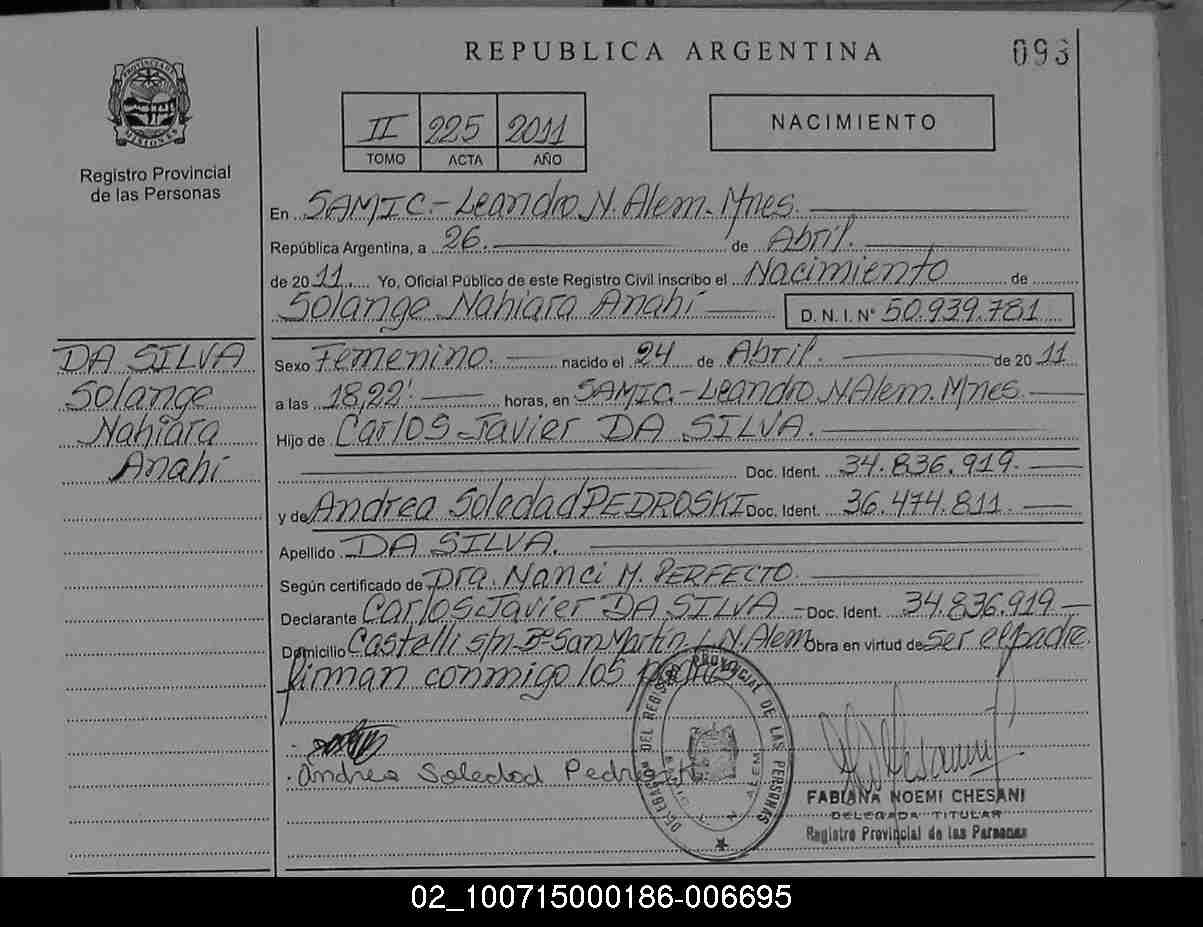 REPUBLICA ARGENTINA
093
PROVINCIA DE MISIONES
Registro Provincial
de las Personas
II 225 2011
TOMO ACTA AÑO
NACIMIENTO
En SAMIC.-Leandro N. Alem. Mnes.
República Argentina, a 26. de Abril.
de 2011 Yo, Oficial Público de este Registro Civil inscribo el Nacimiento de
Solange Nahiara Anahí D. N. I. N° 50.939.781
DA SILVA
Solange
Nahiara
Anahí
Sexo Femenino. nacido el 24 de Abril. de 2011
a las 18,22' horas, en SAMIC.-Leandro N Alem. Mnes.
Hijo de Carlos Javier DA SILVA.
Doc. Ident. 34.836.919.
y de Andrea Soledad PEDROSKI Doc. Ident. 36.474.811.
Apellido DA SILVA.
Según certificado de Dra. Nanci M. PERFECTO.
Declarante Carlos Javier DA SILVA - Doc. Ident. 34.836.919
Domicilio Castelli s/n Bº San Martin L. N. Alem Obra en virtud de ser el padre
firman conmigo los padres
Andrea Soledad
DELEGACION DEL REGISTRO PROVINCIAL DE LAS PERSONAS
N ALEM
FABIANA NOEMI CHESANI
DELEGADA TITULAR
Registro Provincial de las Personas
02_100715000186-006695